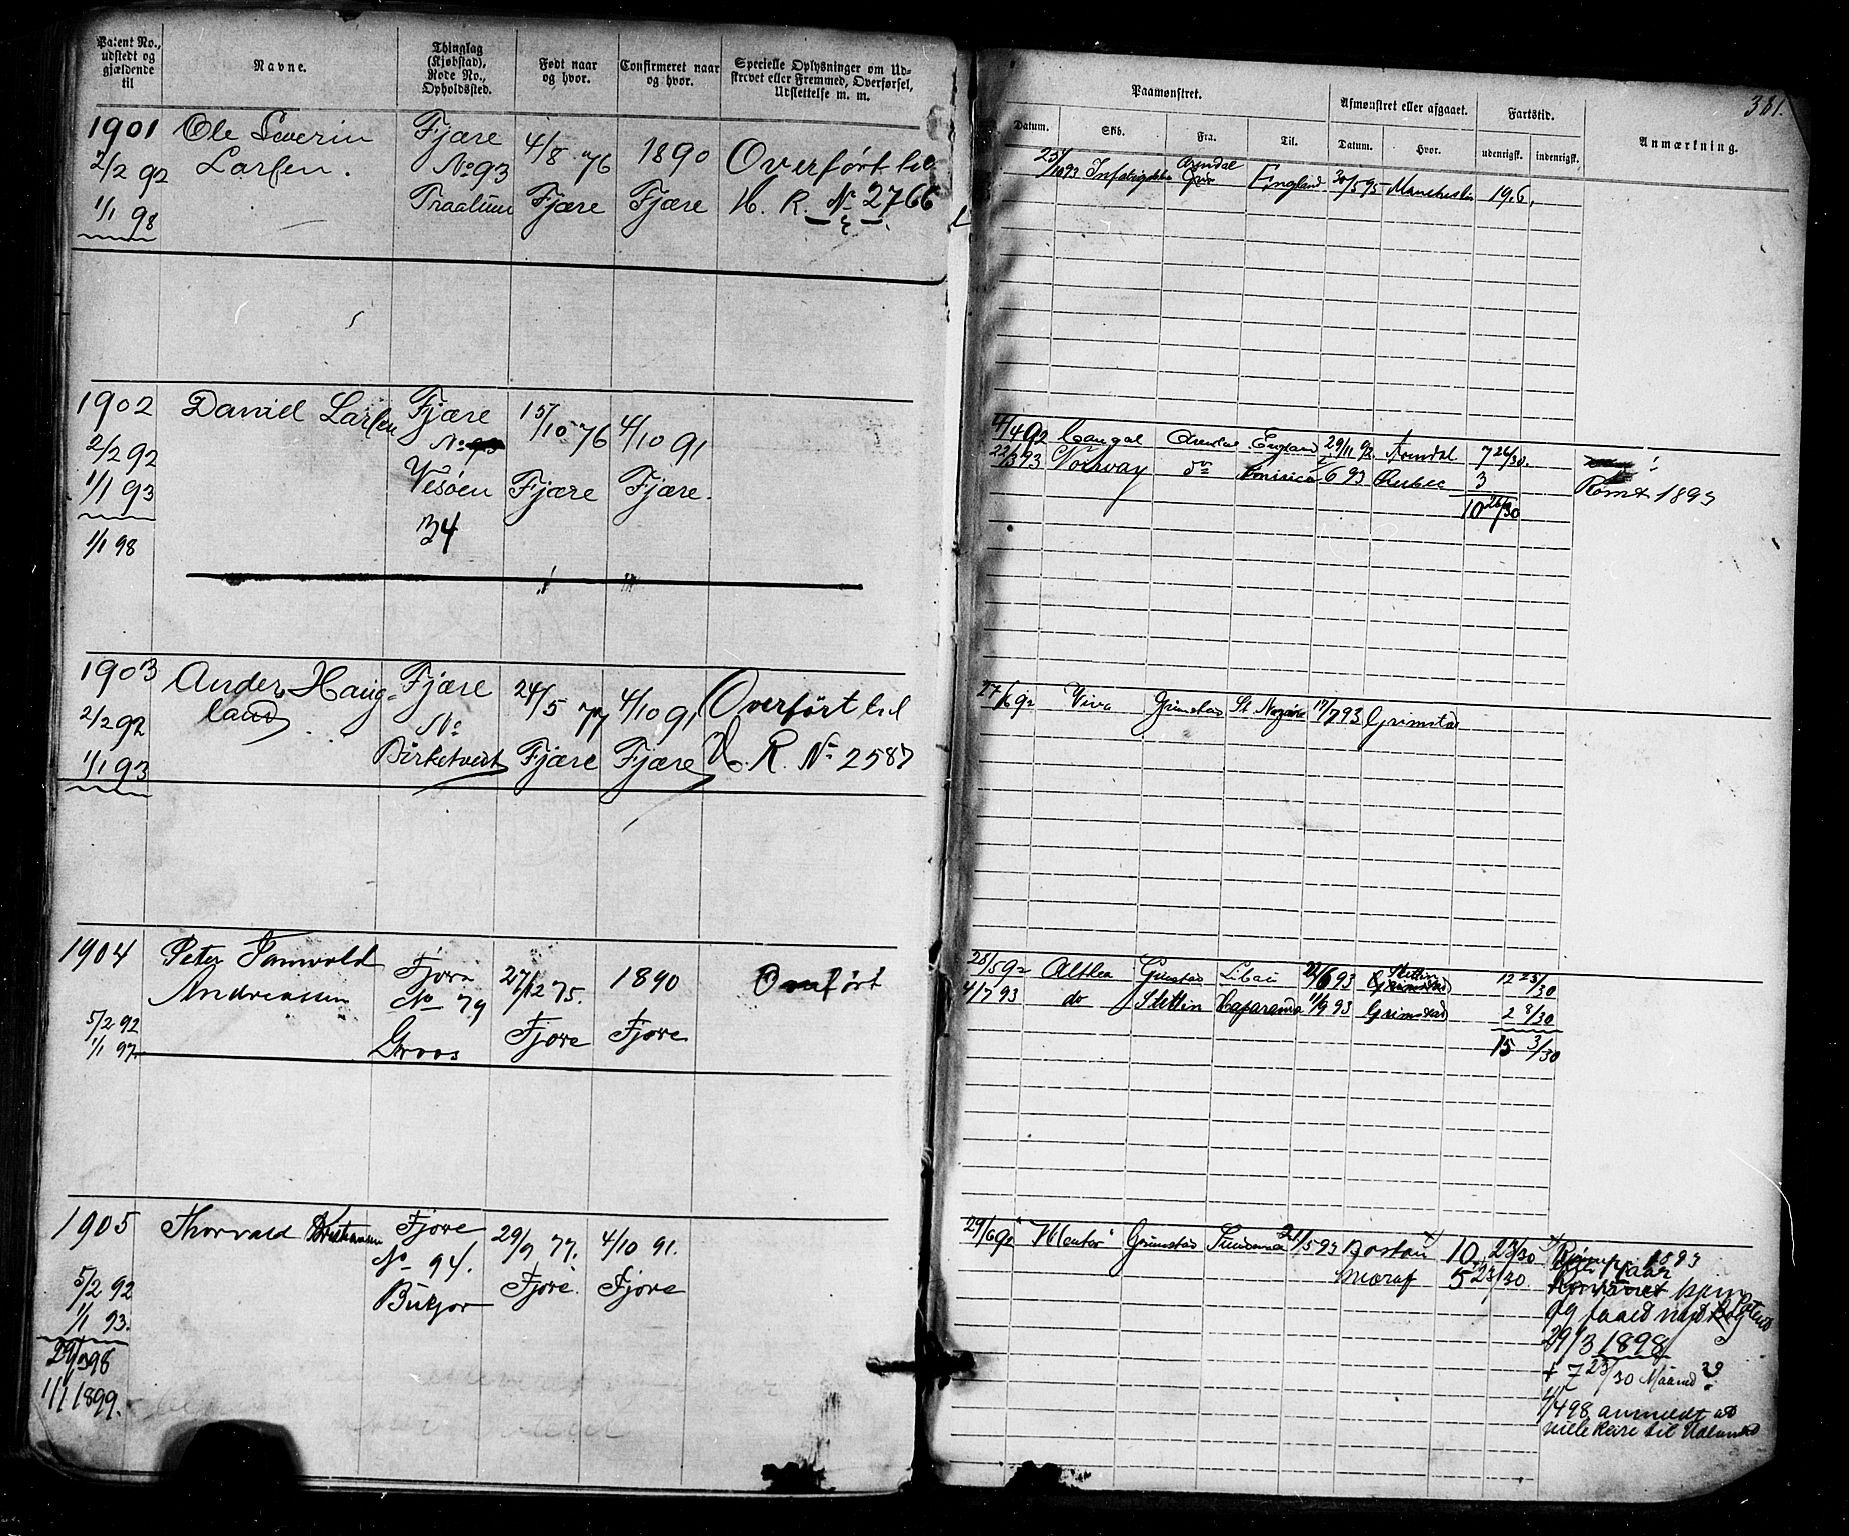 Patent No., udstedt og gjældende til
Navne.
Thinglag (Kjøbstad), Rode No., Opholdssted.
Født naar og hvor.
Confirmeret naar og hvor.
Specielle Oplysninger om Udskrevet eller Fremmed, Overførsel, Udslettelse m. m.
Paamønstret.
Afmønstret eller afgaaet.
Fartstid.
381.
Datum.
Skib.
Fra.
Til.
Datum.
Hvor.
udenrigsk.
indenrigsk.
Anmærkning.
1901
2/2 92
1/1 98
Ole Severin
Larsen.
Fjære
No 93
Traalum
4/8 76
Fjære
1890
Fjære
Overført til
H. R. No 2766
Arendal
England 30/5 95 19,6,
1902
2/2 92
1/1 93
1/1 98
Daniel Larsen
Fjære
No 93
Vesøen
34
15/10 76
Fjære
4/10 91
Fjære.
4/4 92 Arendal England 29/11 92 Arendal 7 26/30.
22/3 93 Norway do 6 93 3
10 26/30
Rømt 1893
1903
2/2 92
1/1 93
Anders Haug-
land
Fjære
No
Birketvedt
24/5 77
Fjære
4/10 91
Fjære
Overført til
H. R. No 2587
27/6 92 Viva Grimstad St. Nazaire 17/7 93 Grimstad
1904
5/2 92
1/1 97
Peter
Andreassen
Fjære
No 79
Groos
27/12 75.
Fjære
1890
Fjære
Overført
28/5 92 Althea Grimstad Libau 22/6 93 Stettin 12 25/30
Grimstad
4/7 93 do Stettin Haparanda 11/9 93 Grimstad 2 8/30
15 3/30
1905
5/2 92
1/1 93.
29/3 98
1/1 1899.
Thorvald Kristiansen
Fjære
No 94.
29/9 77.
Fjære.
4/10 91.
Fjære
29/6 92 "Mentor" Grimstad 21/5 93 Boston 10, 23/30
5 23/30
1893
29/3 1898
+ 7 23/30 Maaned
4/4 98 anmeldt at
ville Reise til Udlandet